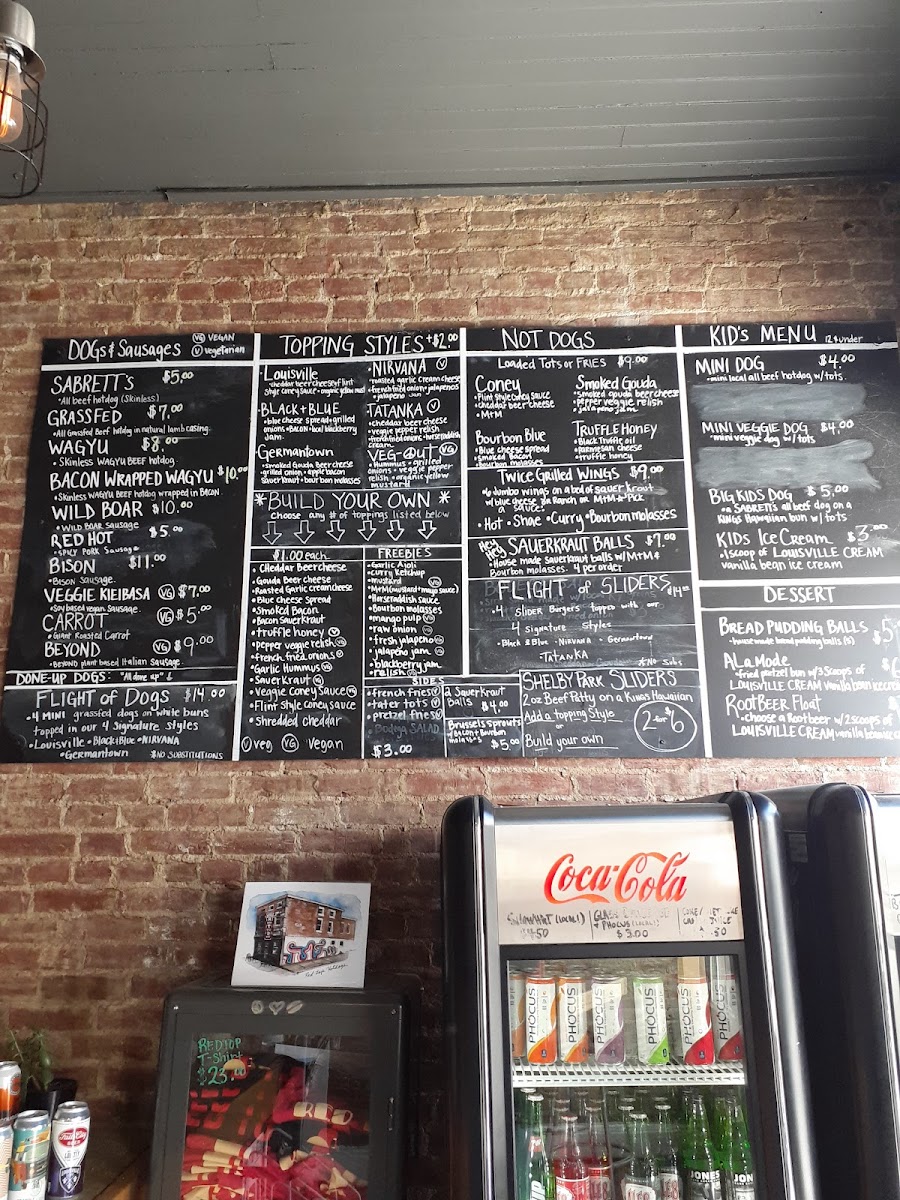 DOGS & Sausages
VG VEGAN
V vegetarian
SABRETT's $5.00
• All beef hotdog (Skinless)
GRASSFED $7.00
• All Grassfed Beef hotdog in natural lamb casing.
WAGYU $8.00
• Skinless WAGYU BEEF hotdog
BACON WRAPPED WAGYU $10.00
• Skinless WAGYU BEEF hotdog wrapped in BACON
WILD BOAR $10.00
• WILD BOAR Sausage
RED HOT $5.00
• SPICY PORK Sausage
BISON $11.00
• Bison Sausage.
VEGGIE KIELBASA VG $7.00
• Soy based vegan Sausage.
CARROT VG $5.00
• Giant Roasted Carrot
BEYOND VG $9.00
• BEYOND plant based Italian Sausage
DONE-UP DOGS: "All done up"
FLIGHT of DOGS $14.00
• 4 MINI grassfed dogs on white buns
topped in our 4 Signature styles
• Louisville • Black+Blue • NIRVANA
• Germantown NO SUBSTITUTIONS
TOPPING STYLES +$2.00
Louisville
• cheddar beer cheese, Flint
Style coney sauce • organic yellow mustard
BLACK + BLUE
• blue cheese spread + grilled
onions • Bacon • local blackberry
Jam
Germantown
• smoked Gouda Beer cheese
grilled onion • apple bacon
Sauer kraut • bourbon molasses
NIRVANA V
• roasted garlic cream cheese
• french fried onion • jalapenos
• jalapeno jam
TATANKA V
• cheddar beer cheese
veggie pepper relish
• french fried onions • horseraddish
cream
VEG-OUT VG
• Hummus • grilled
onions • veggie pepper
relish • organic yellow
mustard
* BUILD YOUR OWN *
choose any # of toppings listed below
$1.00 each
• Cheddar Beer cheese
• Gouda Beer cheese
• Roasted Garlic cream cheese
• Blue cheese Spread
• Smoked Bacon
• Bacon Sauerkraut
• truffle honey V
• pepper veggie relish VG
• french fried onions V
• Garlic Hummus VG
• Sauerkraut VG
• Veggie Coney Sauce VG
• Flint style Coney sauce
• shredded cheddar
V veg VG Vegan
FREEBIES
• Garlic Aioli
• Curry Ketchup
• mustard
• MtM (mustard + mayo sauce)
• Horseraddish sauce
• Bourbon molasses
• mango pulp VG
• raw onion VG
• fresh jalapeno VG
• jalapeno jam VG
• blackberry jam
• relish VG
SIDES
• french fries
• tater tots
• pretzel fries
Bodega SALAD
$3.00
2 Sauerkraut
Balls $4.00
Brussels sprouts
w/ Bacon + Bourbon
$5.00
NOT DOGS
Loaded Tots or FRIES $9.00
CONEY
• Flint Style Coney Sauce
• cheddar beer cheese
• MtM
Smoked Gouda
• smoked gouda beer cheese
• pepper veggie relish
• jalapeno jam
Bourbon Blue
• Blue cheese spread
• smoked bacon
• bourbon molasses
TRUFFLE HONEY
• Black truffle oil
• parmesean cheese
• truffle honey
TWICE Grilled WINGS $9.00
• 6 Jumbo wings on a bed of sauer kraut
w/ blue cheese, Ranch or MtM • Pick
a Sauce:
• Hot • Shae • Curry • Bourbon molasses
Hey Hey SAUERKRAUT BALLS $7.00
• House made Sauerkraut balls w/ MtM +
Bourbon molasses. 4 per order
FLIGHT of SLIDERS $14.00
• 4 SLIDER Burgers topped with our
4 signature Styles
• Black & Blue • NIRVANA • Germantown
• TATANKA
NO Subs
SHELBY PARK SLIDERS
2oz Beef Patty on a Kings Hawaiian
Add a topping Style
Build your own
2 for $6
KID's MENU 12 & under
MINI DOG $4.00
• mini local all beef hotdog w/ tots.
MINI VEGGIE DOG $4.00
• mini veggie dog w/ tots
BIG KIDS DOG $5.00
• a SABRETT's all beef dog on a
KINGS Hawaiian bun w/ tots
KIDS Ice Cream $3.00
• 1 scoop of LOUISVILLE CREAM
vanilla bean ice cream
DESSERT
BREAD PUDDING BALLS $5
• house made bread pudding balls (5)
A La Mode
• fried pretzel bun w/ 3 Scoops of
LOUISVILLE CREAM vanilla bean ice cream
ROOTBEER Float
• choose a Rootbeer w/ 2 scoops of
LOUISVILLE CREAM vanilla bean
Coca-Cola
$4.50
+ PHOCUS (LOCAL)
$3.00
.50
PHOCUS
PHOCUS
PHOCUS
PHOCUS
PHOCUS
PHOCUS
REDTOP
T-Shirt
$23.00
JONES
JONES